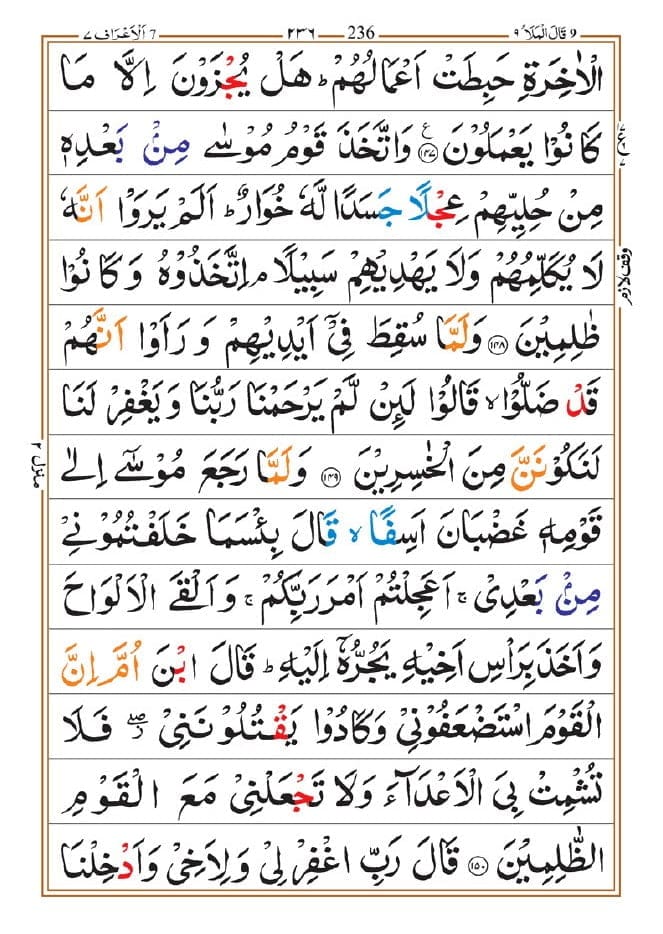 ٩ قَالَ الْمَلَاُ ٩ 236 ٢٣٦ 7 اَلْاَعْرَاف ٧
الْاٰخِرَةِ حَبِطَتْ اَعْمَالُهُمْ ؕ هَلْ يُجْزَوْنَ اِلَّا مَا
كَانُوْا يَعْمَلُوْنَ ﴿۱۴۷﴾ وَاتَّخَذَ قَوْمُ مُوْسٰى مِنْۢ بَعْدِهٖ
مِنْ حُلِيِّهِمْ عِجْلًا جَسَدًا لَّهٗ خُوَارٌ ؕ اَلَمْ يَرَوْا اَنَّهٗ
لَا يُكَلِّمُهُمْ وَلَا يَهْدِيْهِمْ سَبِيْلًا ۘ اِتَّخَذُوْهُ وَكَانُوْا
ظٰلِمِيْنَ ﴿۱۴۸﴾ وَلَمَّا سُقِطَ فِيْۤ اَيْدِيْهِمْ وَرَاَوْا اَنَّهُمْ
قَدْ ضَلُّوْا ۙ قَالُوْا لَىِٕنْ لَّمْ يَرْحَمْنَا رَبُّنَا وَيَغْفِرْ لَنَا
لَنَكُوْنَنَّ مِنَ الْخٰسِرِيْنَ ﴿۱۴۹﴾ وَلَمَّا رَجَعَ مُوْسٰۤى اِلٰى
قَوْمِهٖ غَضْبَانَ اَسِفًا ۙ قَالَ بِئْسَمَا خَلَفْتُمُوْنِيْ
مِنْۢ بَعْدِيْ ۚ اَعَجِلْتُمْ اَمْرَ رَبِّكُمْ ۚ وَاَلْقَى الْاَلْوَاحَ
وَاَخَذَ بِرَاْسِ اَخِيْهِ يَجُرُّهٗۤ اِلَيْهِ ؕ قَالَ ابْنَ اُمَّ اِنَّ
الْقَوْمَ اسْتَضْعَفُوْنِيْ وَكَادُوْا يَقْتُلُوْنَنِيْ ۖ فَلَا
تُشْمِتْ بِيَ الْاَعْدَآءَ وَلَا تَجْعَلْنِيْ مَعَ الْقَوْمِ
الظّٰلِمِيْنَ ﴿۱۵۰﴾ قَالَ رَبِّ اغْفِرْ لِيْ وَلِاَخِيْ وَاَدْخِلْنَا
وقف لازم
منزل ۲